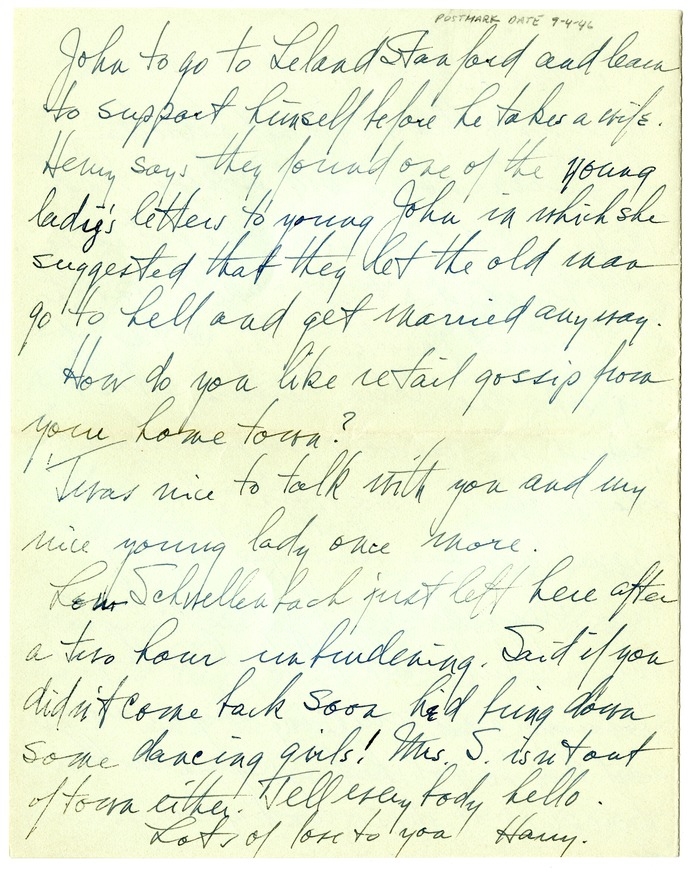 POSTMARK DATE 9-4-46
John to go to Leland Stanford and learn
to support himself before he takes a wife.
Henry says they found one of the young
lady's letters to young John in which she
suggested that they let the old man
go to hell and get married anyway.
How do you like retail gossip from
your home town?
'Twas nice to talk with you and my
nice young lady once more.
Lew Schwellenbach just left here after
a two hour unburdening. Said if you
didn't come back soon he'd bring down
some dancing girls! Mrs. S. isn't out
of town either. Tell everybody hello.
Lots of love to you Harry.